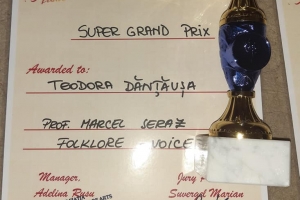 SUPER GRAND PRIX
Awarded to:
TEODORA DĂNȚĂUȘA
PROF. MARCEL SERAZ
FOLKLORE VOICE
Manager,
Adelina Rusu
Jury
Suvergel Marian
ARTS